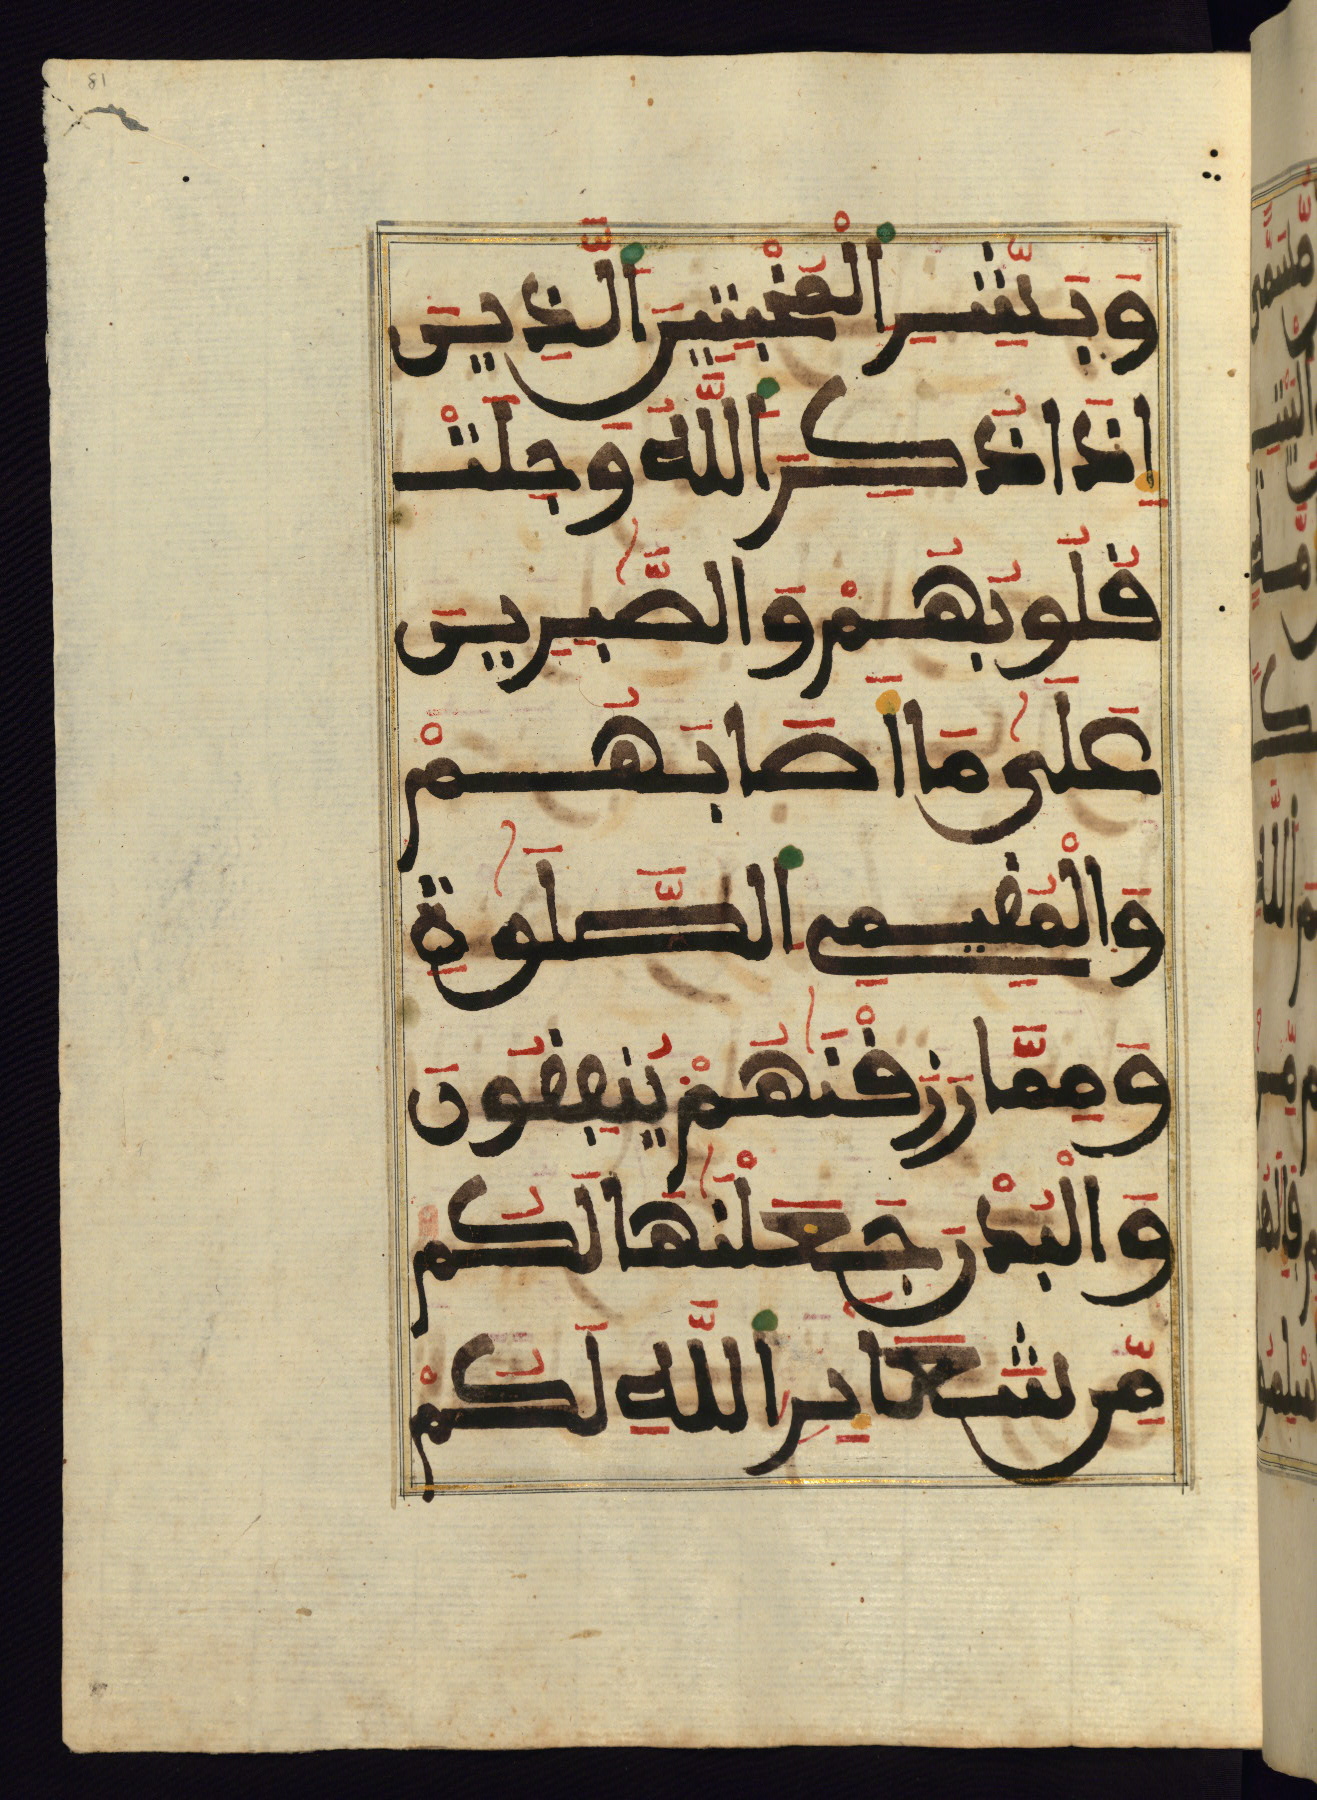 وَبَشِّرِ الْمُخْبِتِينَ الَّذِينَ
إِذَا ذُكِرَ اللَّهُ وَجِلَتْ
قُلُوبُهُمْ وَالصَّٰبِرِينَ
عَلَىٰ مَا أَصَابَهُمْ
وَالْمُقِيمِى الصَّلَوٰةِ
وَمِمَّا رَزَقْنَٰهُمْ يُنفِقُونَ
وَالْبُدْنَ جَعَلْنَٰهَا لَكُم
مِّن شَعَائِرِ اللَّهِ لَكُمْ
81